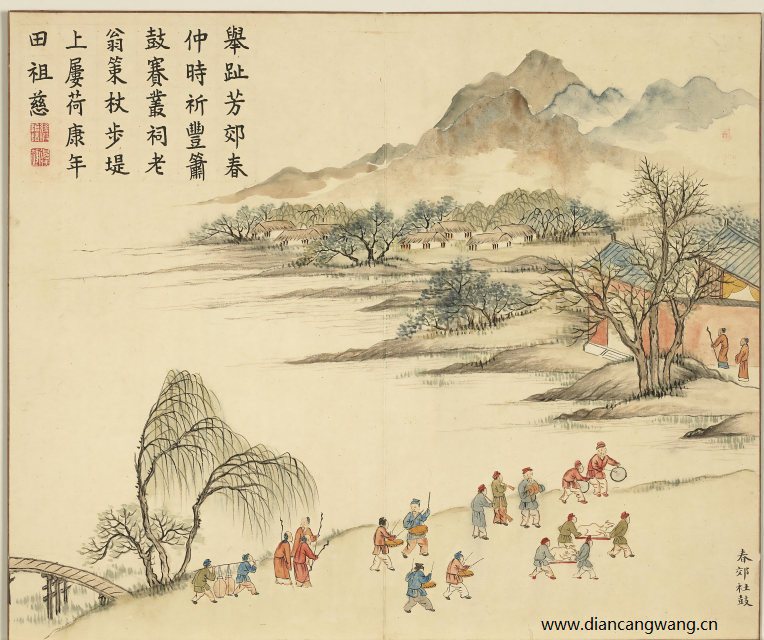 舉趾芳郊春
仲時祈豐簫
鼓賽叢祠老
翁策杖步堤
上屢荷康年
田祖慈
春郊社鼓
www.diancangwang.cn